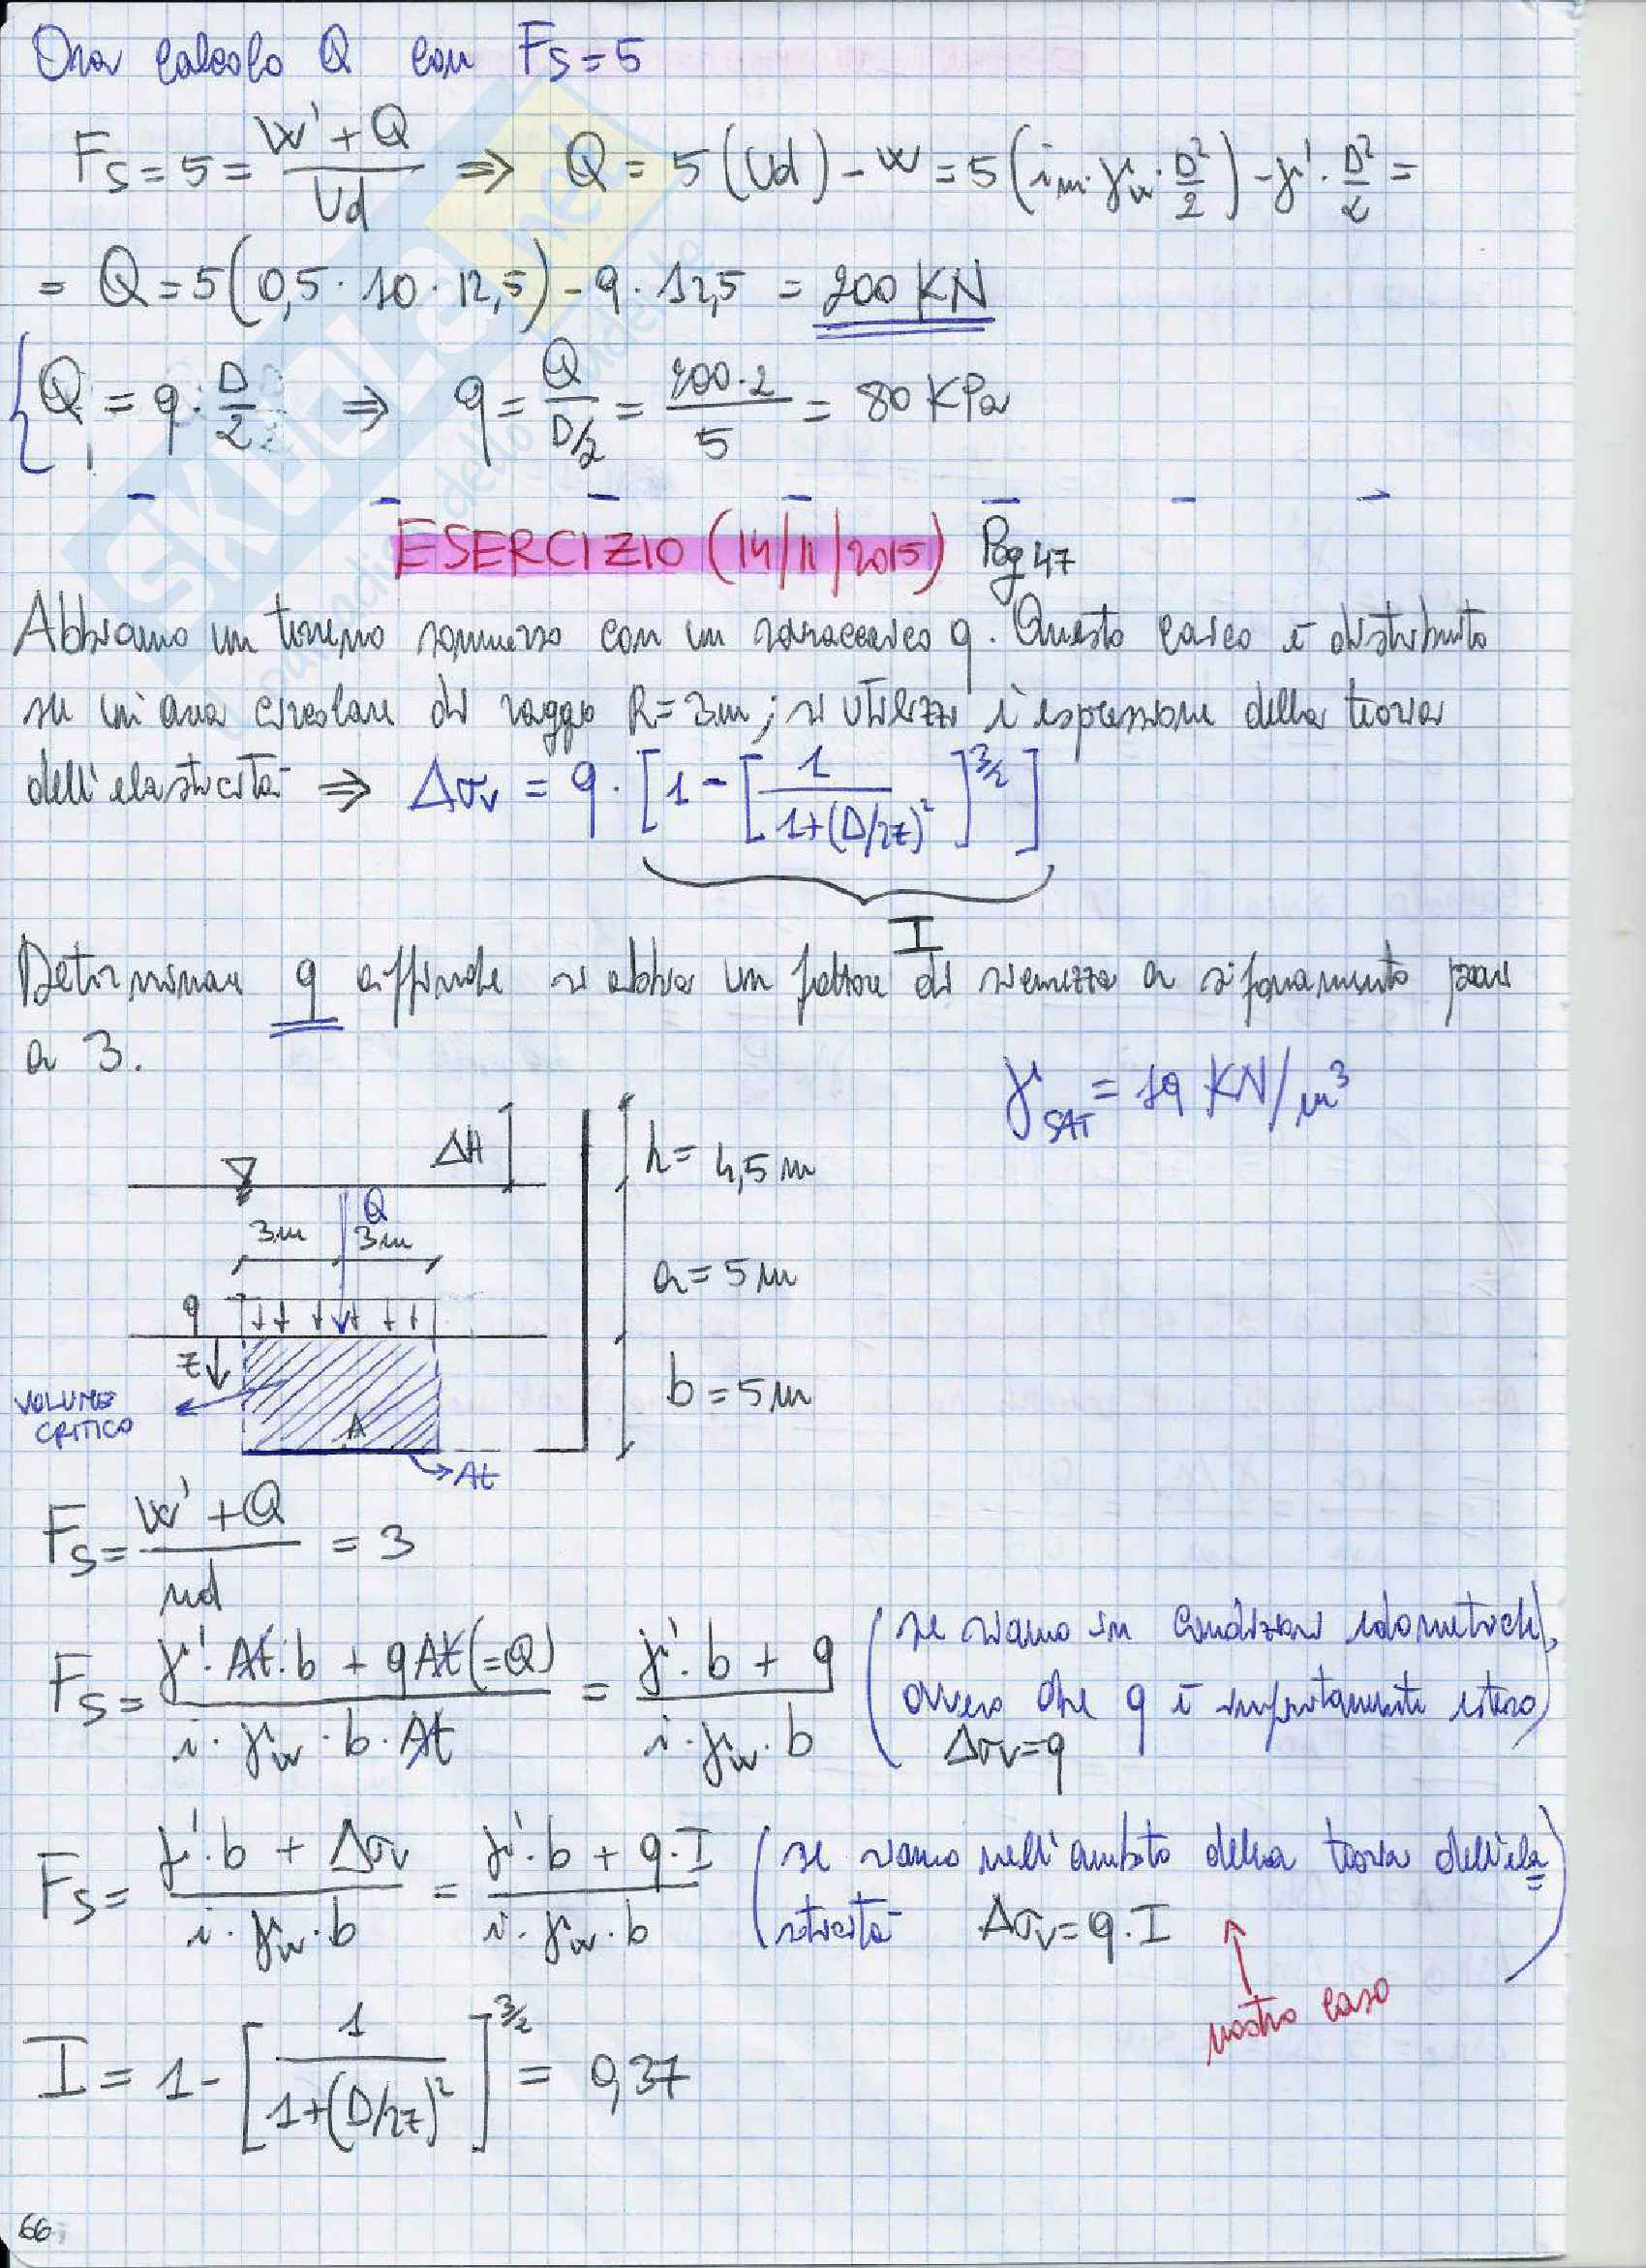 Ora calcolo Q con Fs=5
Fs = 5 = (W' + Q)/Ud ⇒ Q = 5 (Ud) - W = 5 (im · γw · D²/2) - γ' · D²/2 =
= Q = 5 (0,5 · 10 · 12,5) - 9 · 12,5 = 200 KN
{ Q = q · D/2 ⇒ q = Q/(D/2) = (200 · 2)/5 = 80 KPa
ESERCIZIO (14/11/2015) Pag 47
Abbiamo un terreno sommerso con un sovraccarico q. Questo carico è distribuito
su un'area circolare di raggio R=3m; si utilizzi l'espressione della teoria
dell'elasticità ⇒ Δσv = q · [1 - [1/(1+(D/2z)²)]^3/2]
I
Determinare q affinché si abbia un fattore di sicurezza a sifonamento pari
a 3.
γSAT = 19 KN/m³
ΔH
h = 4,5 m
Q
3m 3m
a = 5 m
q
z
b = 5 m
VOLUME
CRITICO
A
At
Fs = (W' + Q)/ud = 3
Fs = (γ' · At · b + qAt (=Q))/(i · γw · b · At) = (γ' · b + q)/(i · γw · b) (se siamo in condizioni edometriche,
ovvero che q è infinitamente esteso)
Δσv = q
Fs = (γ' · b + Δσv)/(i · γw · b) = (γ' · b + q · I)/(i · γw · b) (se siamo nell'ambito della teoria dell'ela=
sticità Δσv = q · I)
nostro caso
I = 1 - [1/(1+(D/2z)²)]^3/2 = 0,37
66
SKUOLA.net